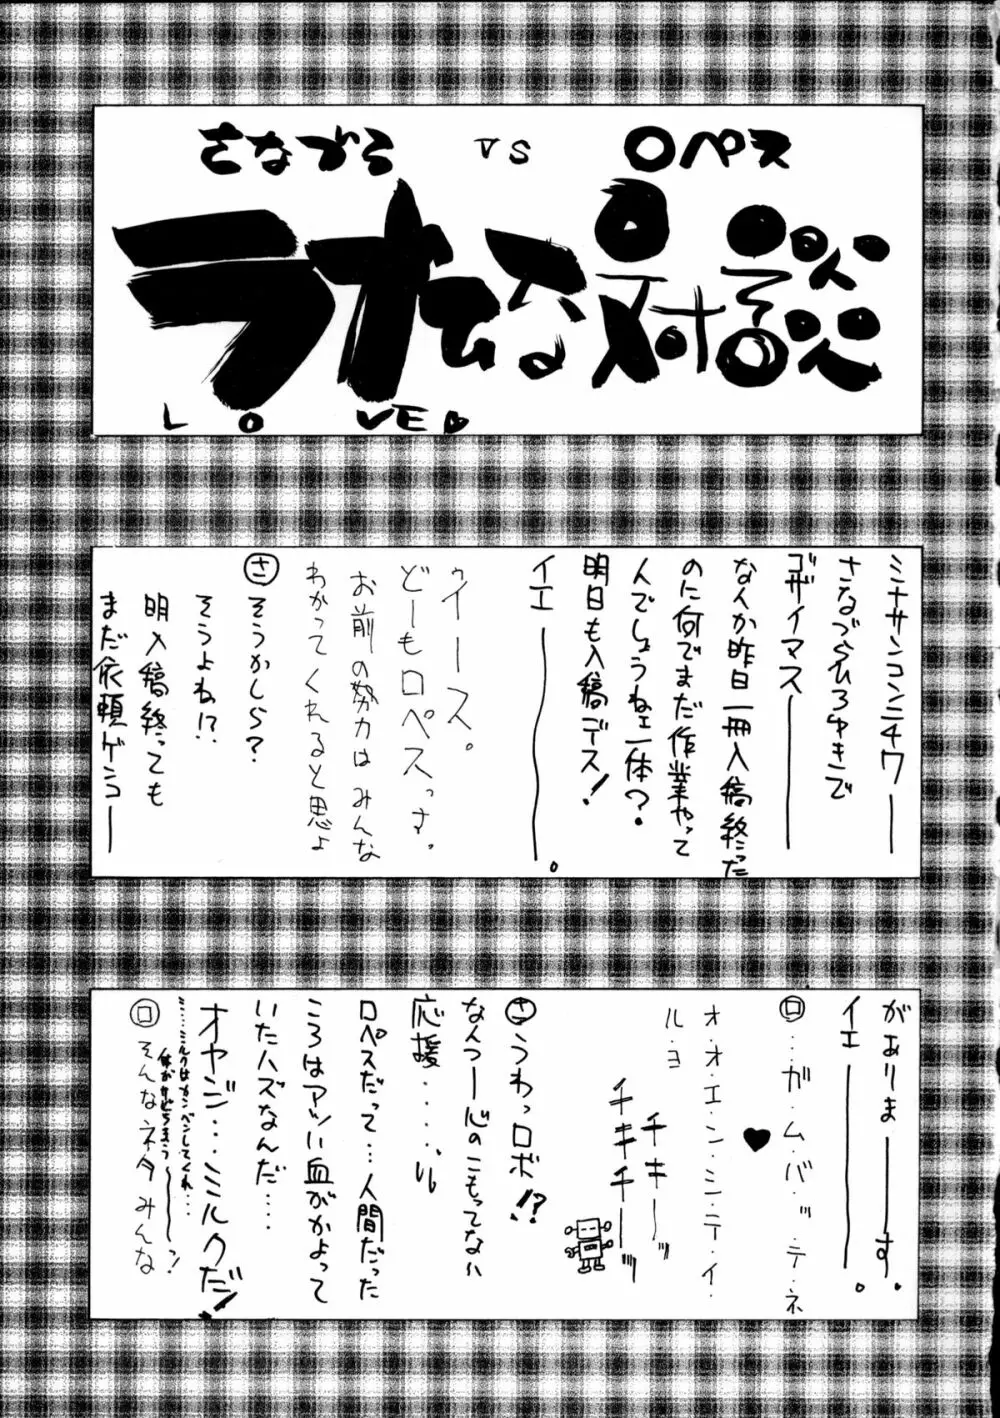 さなづら VS ロペス
ラブな対談
LOVE♥
ミナサンコンニチワ――
さなづらひろゆきで
ゴザイマス――
なんか昨日一冊入稿終った
のに何でまだ作業やって
んでしょうねェ一体?
明日も入稿デス!
イエ――。
ゥイース。
どーもロペスっす。
お前の努力はみんな
わかってくれると思よ
㋚そうかしら?
そうよね!?
明入稿終っても
まだ依頼ゲンコ――
がありま――す。
イエ――。
㋺…ガ・ム・バ・ッ・テ・ネ
♥
オ・オ・エ・ン・シ・テ・イ・
ル・ヨ
チキーッ
チキチーッ
㋚うわっロボ!?
なんつー心のこもってない
応援‥‥‥い。
ロペスだって…人間だった
ころはアツい血がかよって
いたハズなんだ…
オヤジ…ミルクだ!
ミ…ミルクはカンベンしてくれ…
体がサビちまう――っ!
㋺そんなネタみんな